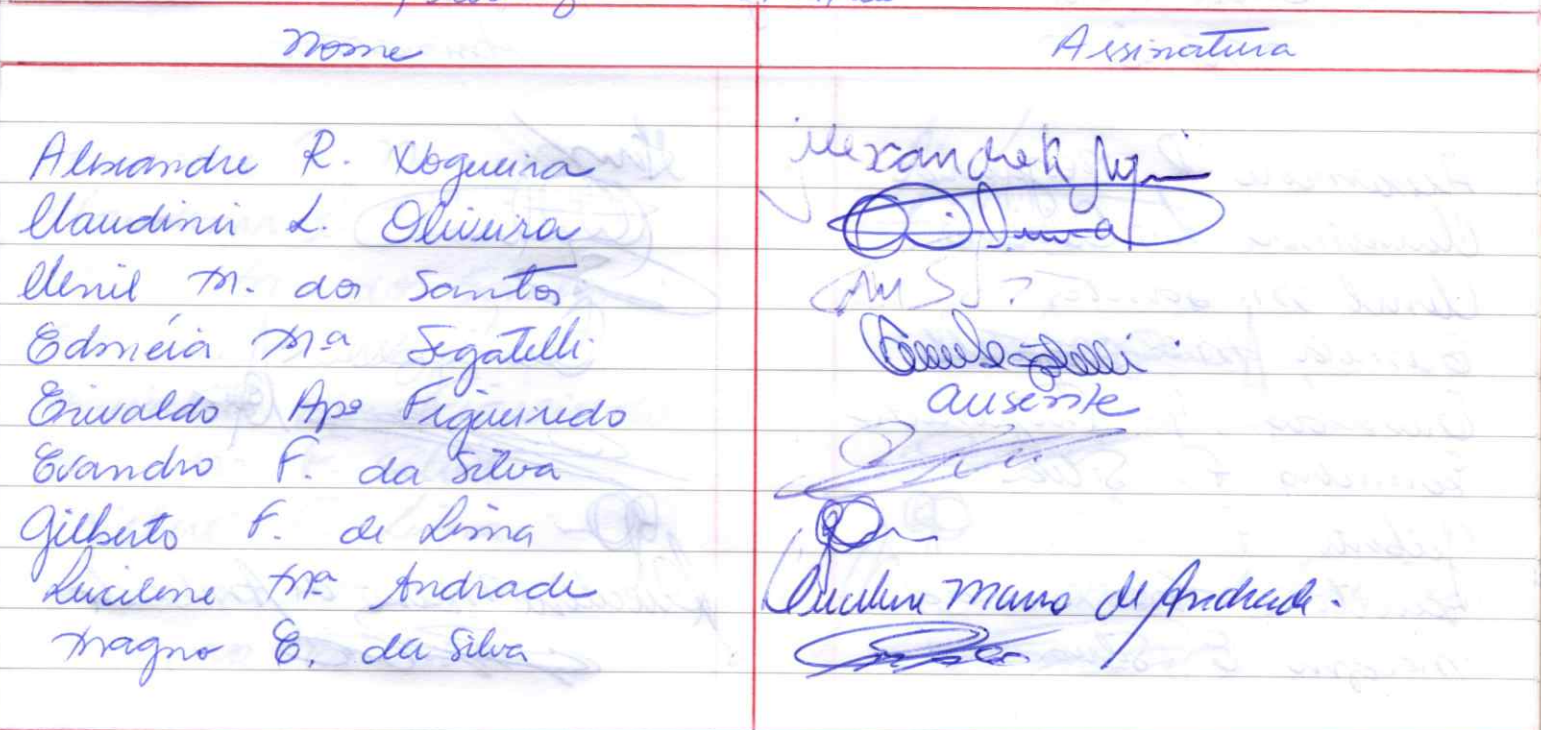 Nome Assinatura
Alexandre R. Nogueira Alexandre R
Claudinir L. Oliveira
Clenil M. dos Santos
Edméia Mª Segatelli
Erivaldo Apº Figueiredo ausente
Evandro F. da Silva
Gilberto F. de Lima
Lucilene Mª Andrade Lucilene Maria de Andrade.
Magno E. da Silva